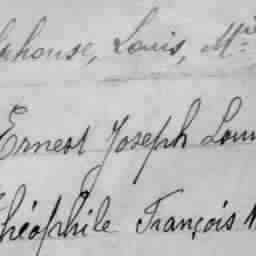 Louis, M
Ernest Joseph Lou
Théophile François